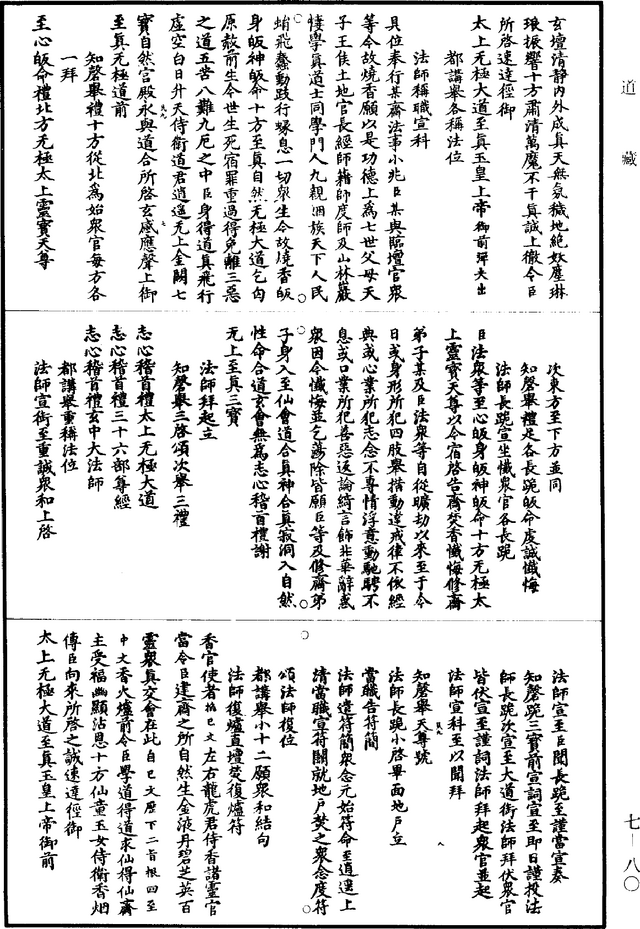 道藏
玄壇清靜內外成真天無氛穢地絕妖塵琳
琅振響十方肅清萬魔不干真誠上徹令臣
所啓速達徑御
太上无極大道至真玉皇上帝御前彈夫出
都講舉各稱法位
法師稱職宣科
具位奉行某齋法事小兆臣某與臨壇官衆
等令故燒香願以是功德上爲七世父母天
子王侯土地官長經師籍師度師及山林巖
棲學真道士同學門人九親姻族天下人民
蛸飛蠢動跂行蜎息一切衆生令故燒香皈
身皈神皈命十方至真自然无極大道乞勾
原赦前生今世生死宿罪重過得免離三惡
之道五苦八難九厄之中臣身得道真飛行
虛空白日升天侍衛道君逍遥无上金闕七
寶自然宮殿永與道合所啓玄感應聲上御
至真无極道前
知磬舉禮十方從北爲始衆官每方各
一拜
至心皈命禮北方无極太上靈寶天尊
次東方至下方並同
知磬舉禮足各長跪皈命虔誠懺悔
法師長跪宣坐懺衆官各長跪
臣法衆等至心皈身皈神皈命十方无極太
上靈寶天尊以今宿啓告齋焚香懺悔修齋
弟子某及臣法衆等自從曠劫以來至于今
日或身形所犯四肢舉措動違戒律不依經
典或心業所犯志念不專情浮意動馳騁不
息或口業所犯善惡返論綺言飾非華辭惑
衆因今懺悔並乞蕩除皆願臣等及修齋弟
子身入至仙會道合真神合真寂洞入自然
性命合道玄會無爲志心稽首禮謝
无上至真三寶
法師拜起立
知磬舉三啓頌次舉三禮
志心稽首禮太上无極大道
志心稽首禮三十六部尊經
志心稽首禮玄中大法師
都講舉重稱法位
法師宣銜至重誠衆和上啓
法師宣至臣聞長跪至謹當宣奏
知磬跪三寶前宣詞宣至即日謹投法
師長跪次宣至大道銜法師拜伏衆官
皆伏宣至謹詞法師拜起衆官並起
法師宣科至以聞拜
知磬舉天尊號
法師長跪小啓畢面地戶立
當職告符簡
法師遣符簡衆念元始符命至逍遥上
清當職宣符關就地戶焚之衆念度符
頌法師復位
都講舉小十二願衆和結句
法師復爐直壇焚復爐符
香官使者捻巳文左右龍虎君侍香諸靈官
當令臣建齋之所自然生金液丹碧芝英百
靈衆真交會在此自巳文歷下二旨根四至
中文香火爐前令臣學道得道求仙得仙齋
主受福幽顯沾恩十方仙童玉女侍衛香烟
傳臣向來所啓之誠速達徑御
太上无極大道至真玉皇上帝御前
七—八〇